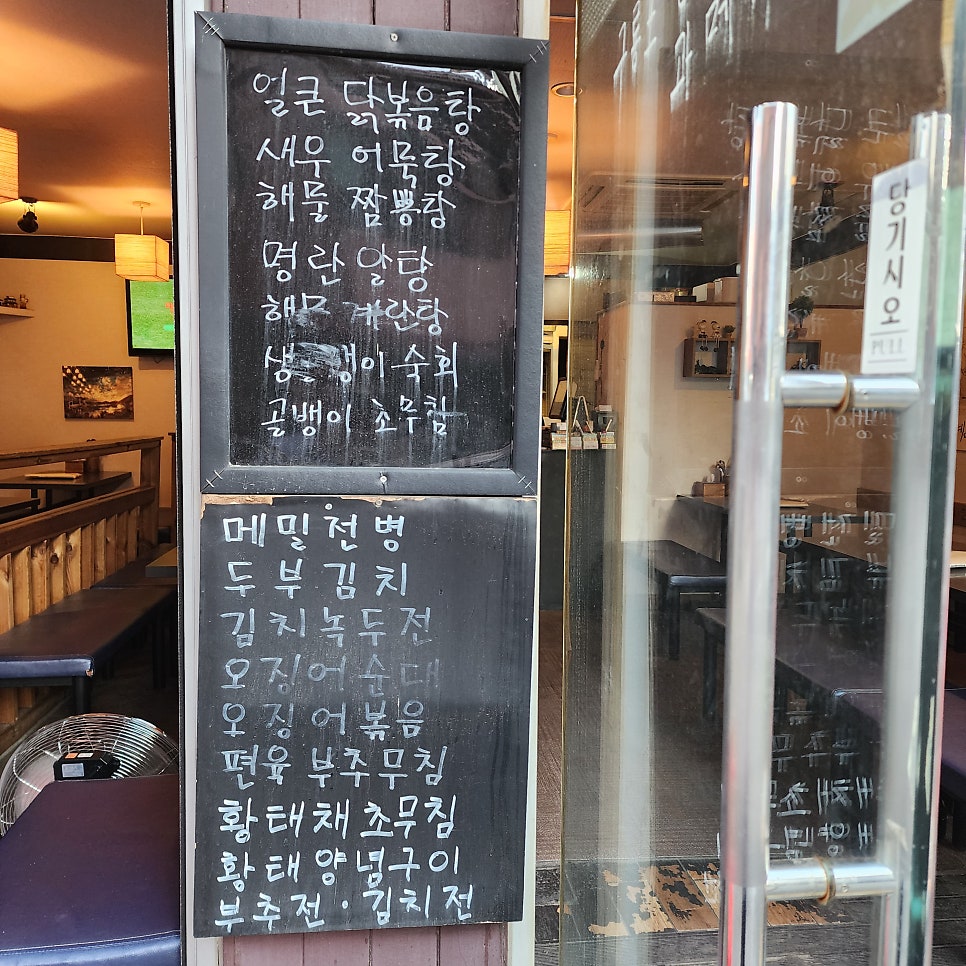 얼큰 닭볶음탕
새우 어묵탕
해물 짬뽕탕
명란 알탕
계란탕
숙회
골뱅이 초무침
메밀전병
두부김치
김치녹두전
오징어순대
오징어볶음
편육 부추무침
황태채초무침
황태양념구이
부추전·김치전
당기시오
PULL